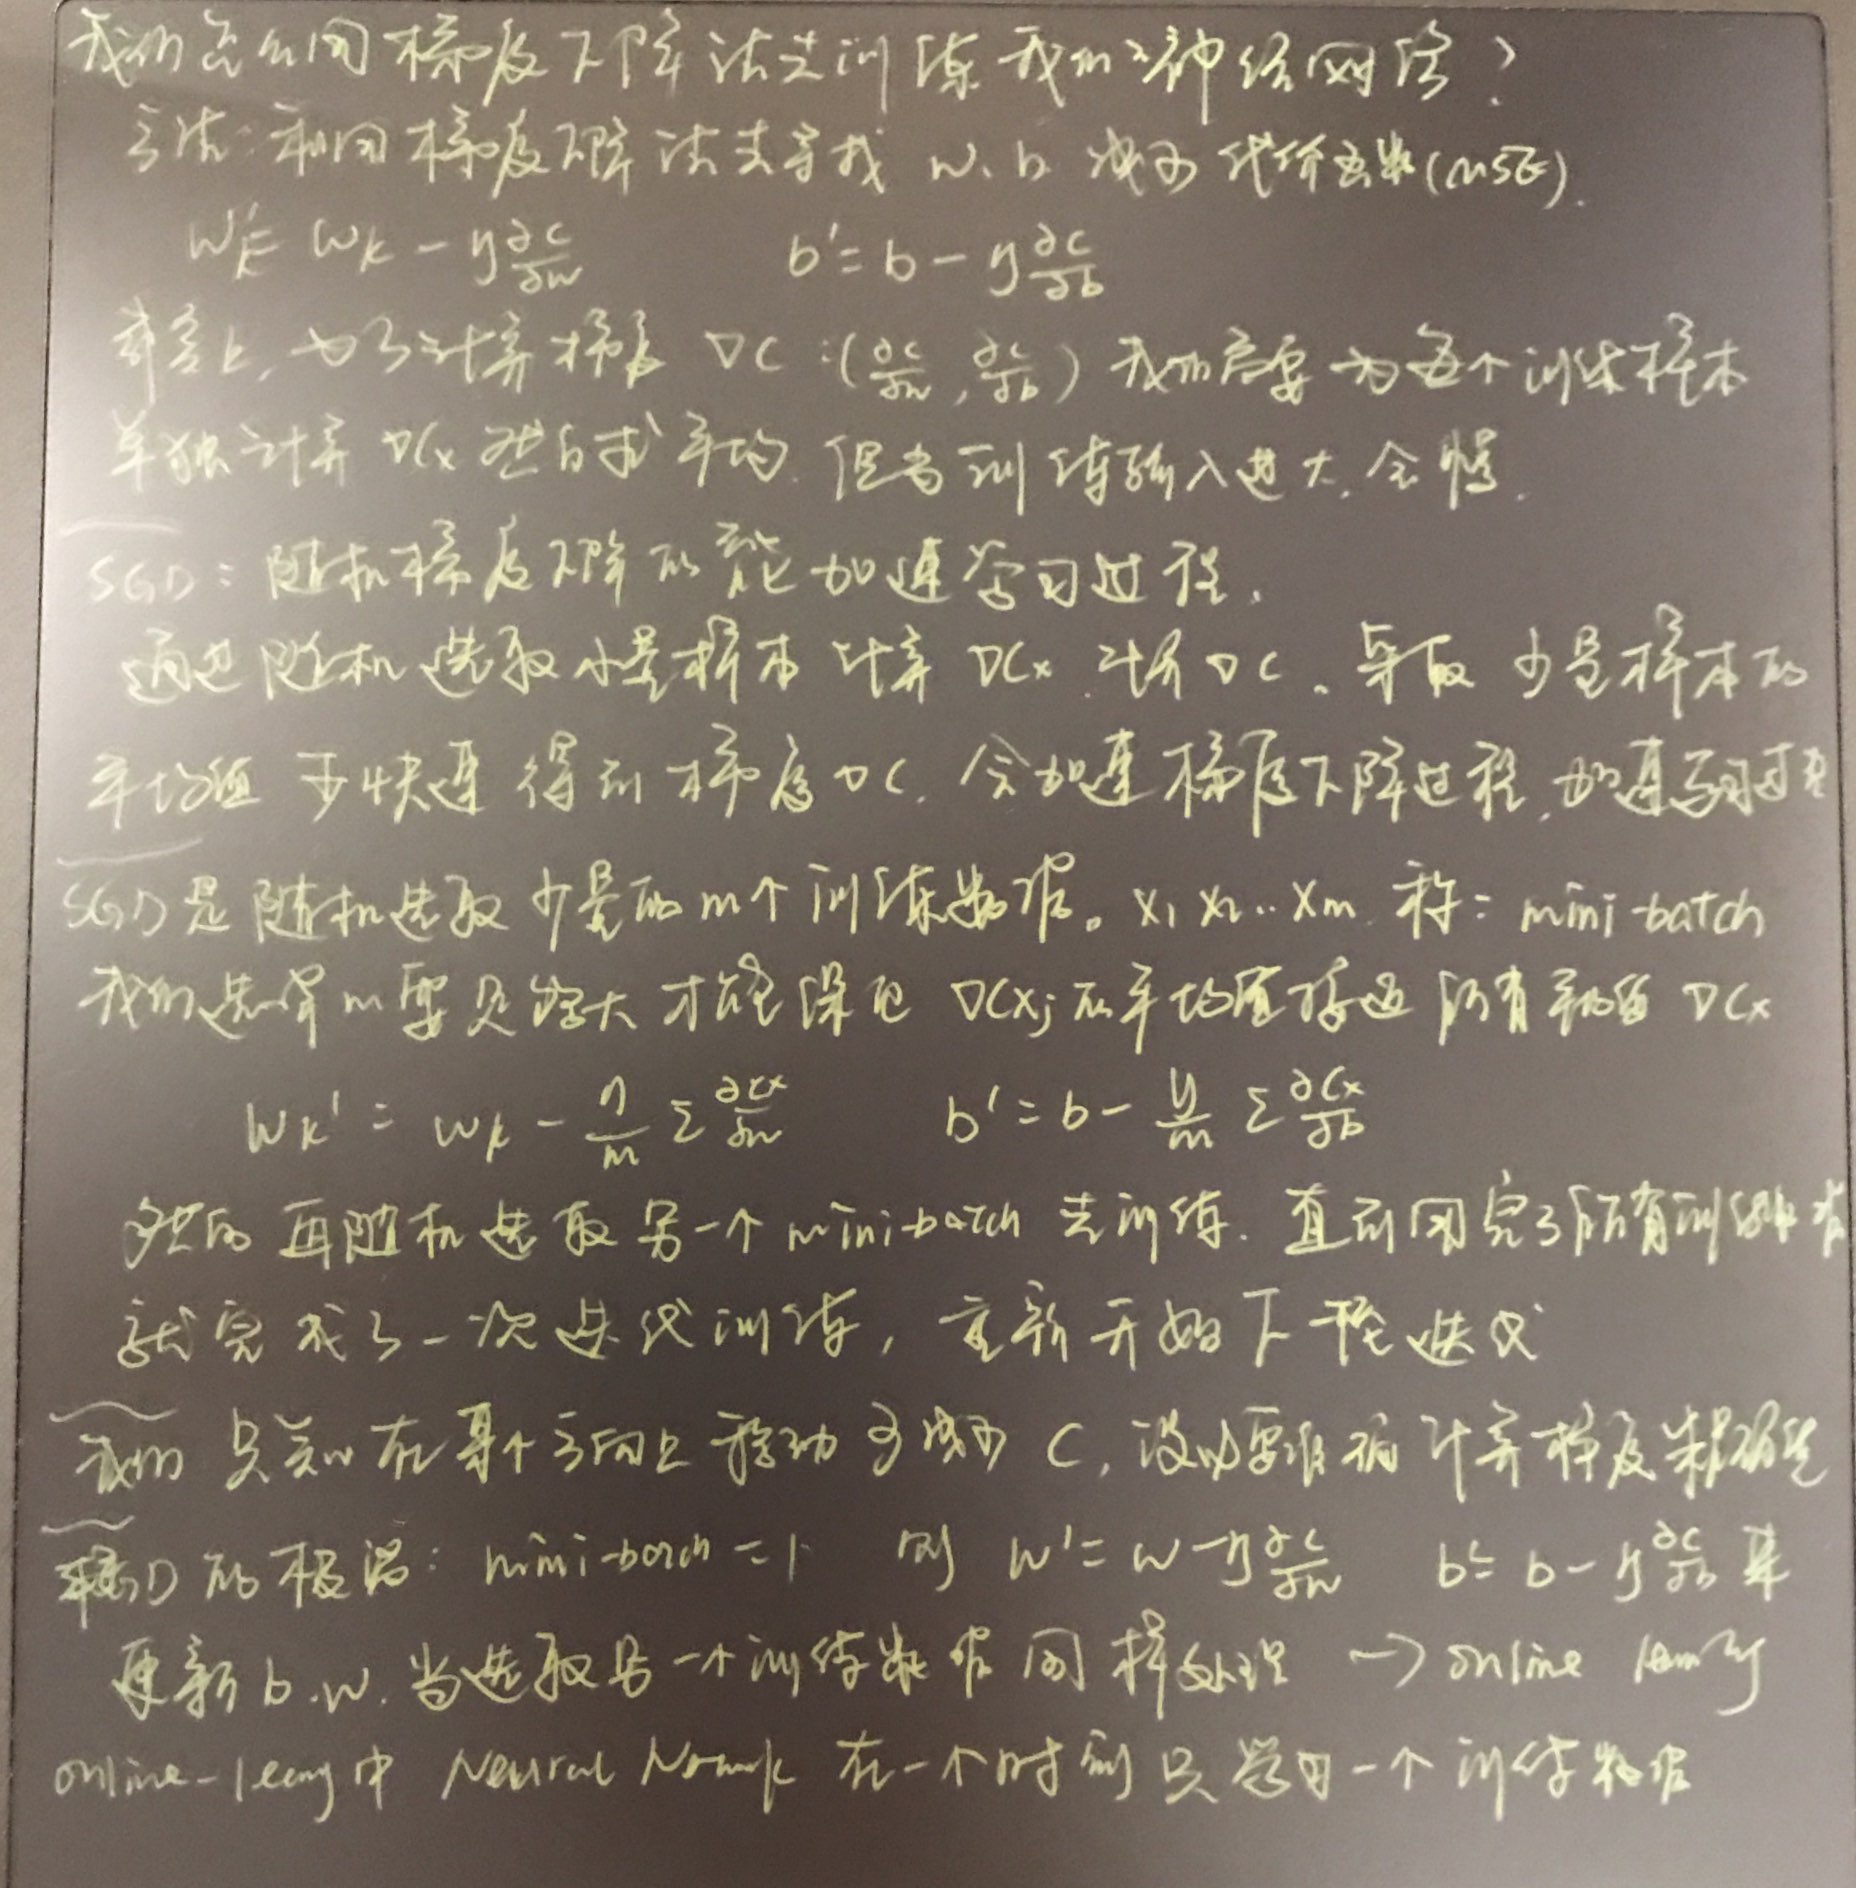 我们怎么用梯度下降法去训练我们的神经网络?
方法:利用梯度下降法去寻找 w、b 减少代价函数(MSE).
wₖ' = wₖ - η ∂C/∂w    b' = b - η ∂C/∂b
事实上,为了计算梯度 ∇C:(∂C/∂w, ∂C/∂b) 我们需要为每个训练样本
单独计算 ∇Cx 然后求平均. 但当训练输入过大,会慢.
SGD:随机梯度下降 能加速学习过程.
通过随机选取小量样本计算 ∇Cx 计算 ∇C。采取 少量样本的
平均值 可快速得到梯度 ∇C. 会加速梯度下降过程,加速学习过程
SGD是随机选取少量的m个训练数据。x₁ x₂..xₘ 称:mini-batch
我们选择m要足够大才能保证 ∇Cxⱼ的平均值接近所有平均值 ∇Cx
wₖ' = wₖ - η/m Σ ∂Cx/∂w    b' = b - η/m Σ ∂Cx/∂b
然后再随机选取另一个 mini-batch 去训练. 直到用完了所有训练数据
就完成了一次迭代训练,重新开始下一轮迭代
我们只关心在某个方向上移动可减少 C,没必要 计算梯度精确值
的极端:mini-batch = 1 则 w' = w - η ∂C/∂w    b' = b - η ∂C/∂b 来
更新 b.w. 当选取另一个训练数据同样处理 → online learning
online-learning中 Neural Network 在一个时刻只学习一个训练数据